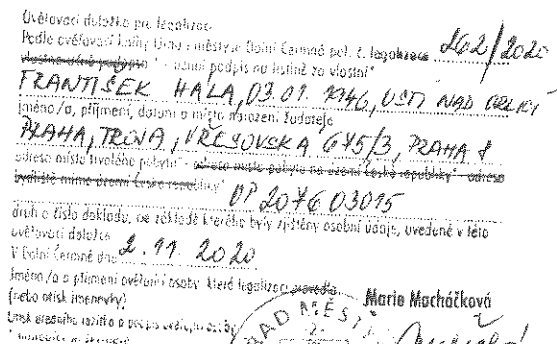 Ověřovací doložka pro legalizaci
Podle ověřovací knihy Úřadu městyse Dolní Čermná poř. č. legalizace 262/2020
vlastnoručně podepsal* - uznal podpis na listině za vlastní*
FRANTIŠEK HALA, 03.01. 1946, ÚSTÍ NAD ORLICÍ
jméno/a, příjmení, datum a místo narození žadatele
PRAHA, TROJA, VŘESOVSKÁ 645/3, PRAHA 8
adresa místa trvalého pobytu* - adresa místa pobytu na území České republiky* - adresa
bydliště mimo území České republiky*
OP 207603015
druh a číslo dokladu, na základě kterého byly zjištěny osobní údaje, uvedené v této
ověřovací doložce
V Dolní Čermné dne 2.11.2020
Jméno/a a příjmení ověřující osoby, která legalizaci provedla
Marie Macháčková
(nebo otisk jmenovky)
Otisk úředního razítka a podpis ověřující osoby
ÚŘAD MĚSTY